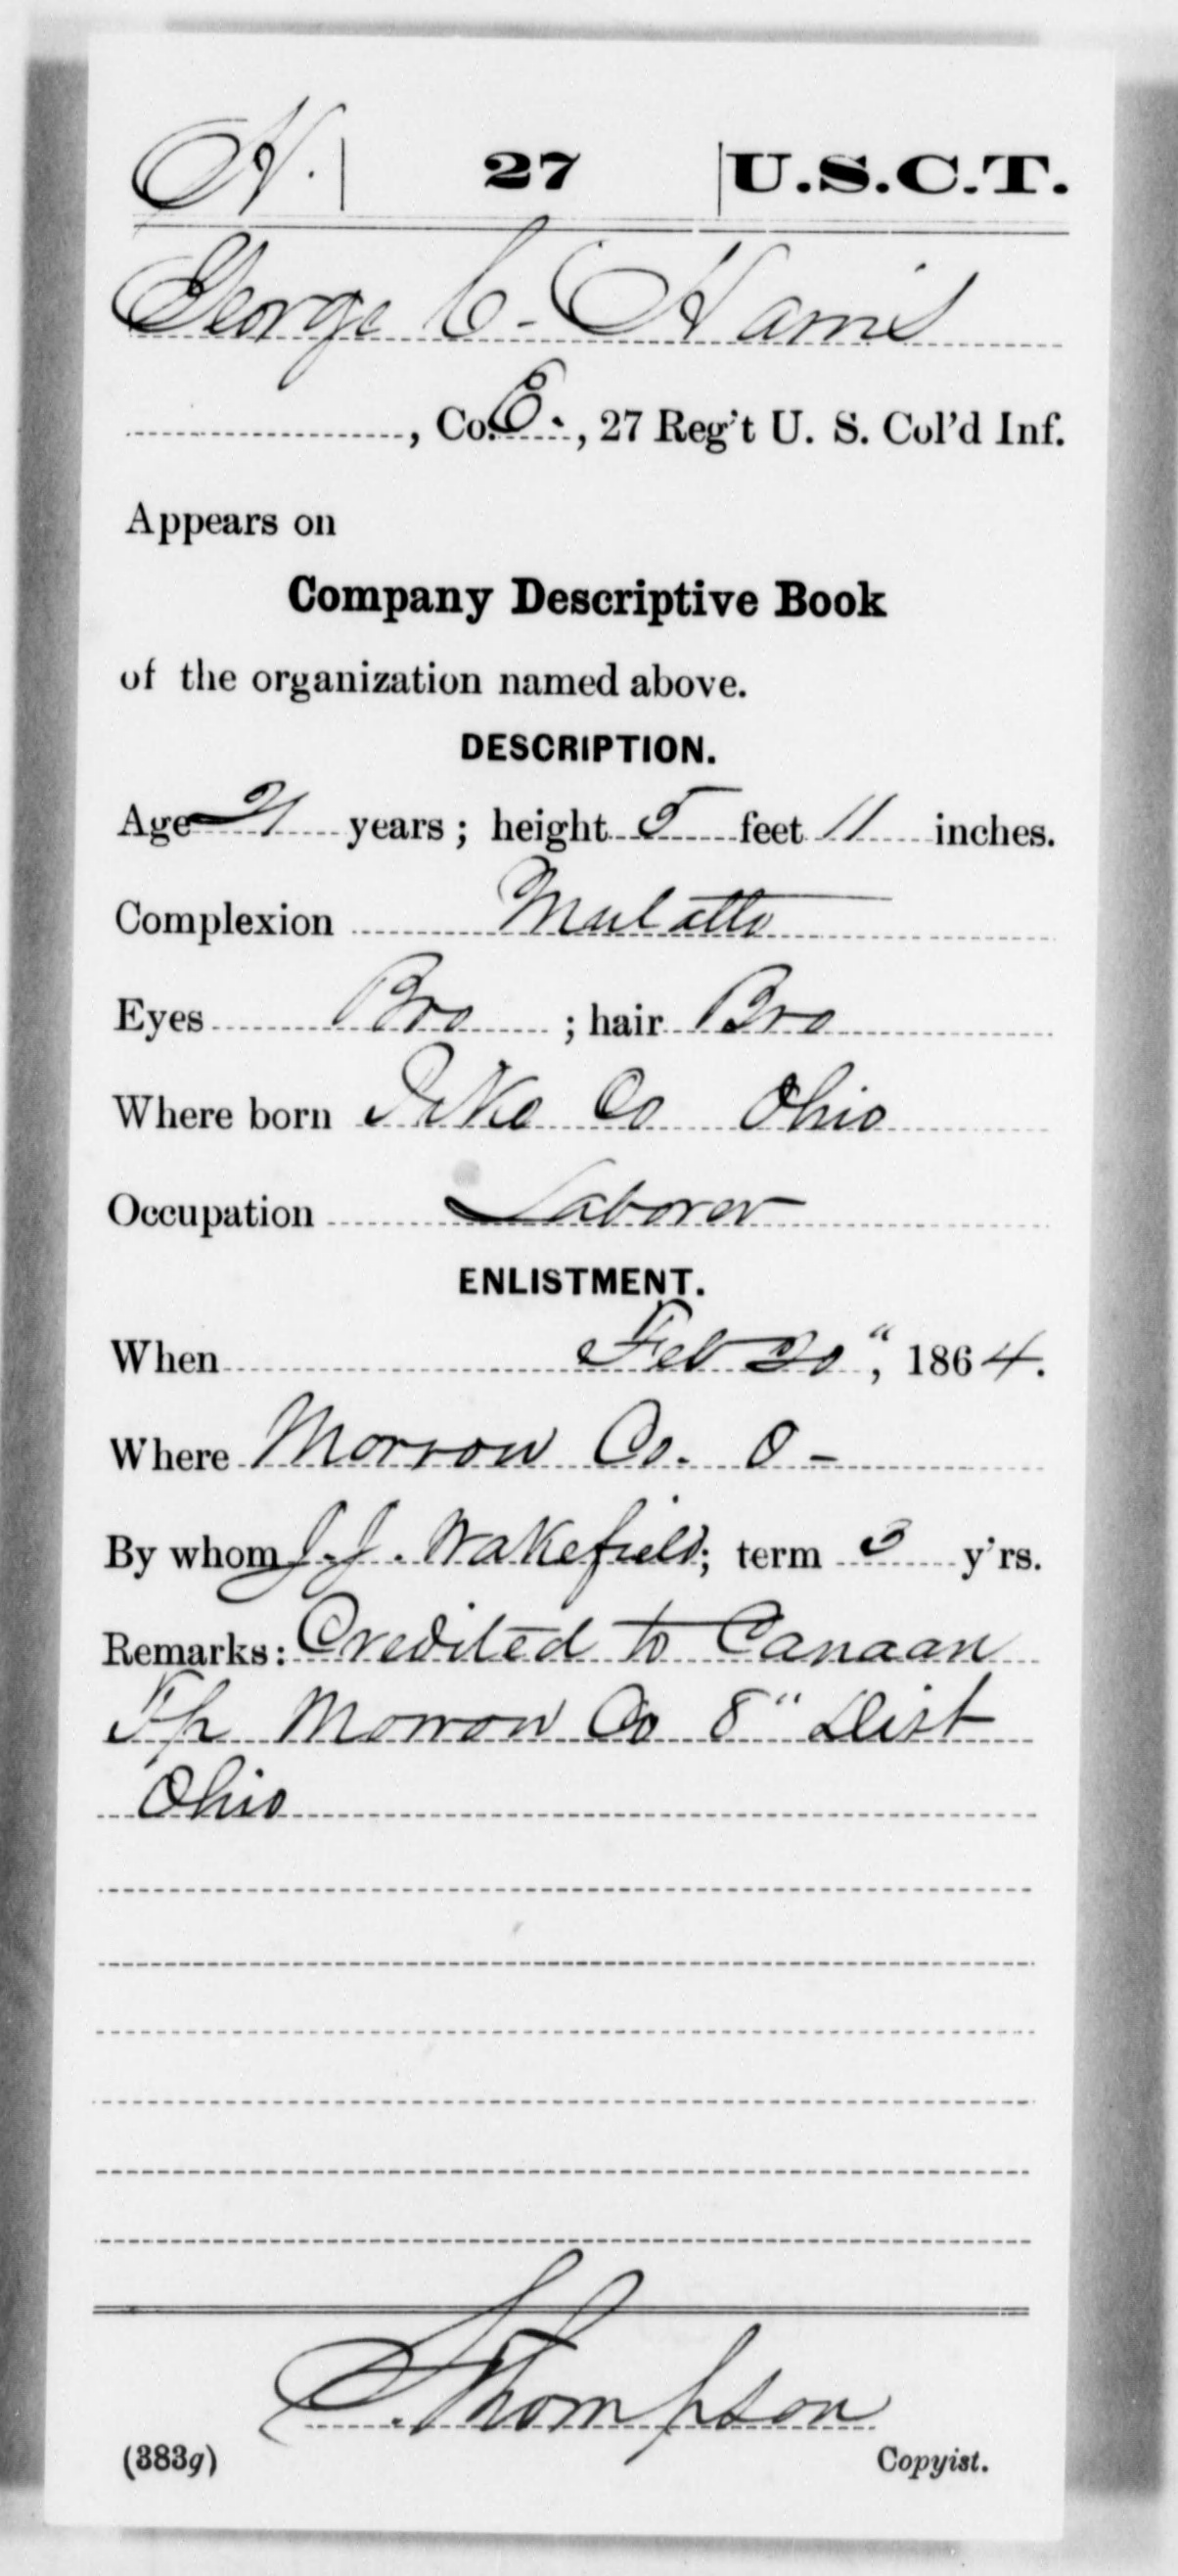 H. | 27 | U.S.C.T.
George C. Harris
, Co. E., 27 Reg't U. S. Col'd Inf.
Appears on
Company Descriptive Book
of the organization named above.
DESCRIPTION.
Age 21 years; height 5 feet 11 inches.
Complexion Mulatto
Eyes Bro ; hair Bro
Where born Pike Co Ohio
Occupation Laborer
ENLISTMENT.
When Feb 20", 1864.
Where Morrow Co. O -
By whom J. J. Wakefield; term 3 y'rs.
Remarks: Credited to Canaan
Tp Morrow Co 8" Dist
Ohio
Thompson
(383g) Copyist.